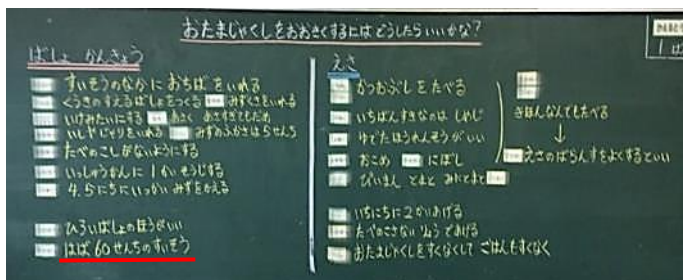 おたまじゃくしをおおきくするにはどうしたらいいかな?
1ぱ
ばしょ かんきょう
すいそうのなかにおちばをいれる
くうきのすえるばしょをつくる みずくさをいれる
いけみたいにする あさく あさすぎてもだめ
いしやじゃりをいれる みずのふかさは5せんち
たべのこしがないようにする
いっしゅうかんに1かいそうじする
4.5にちにいっかいみずをかえる
ひろいばしょのほうがいい
はば60せんちのすいそう
えさ
かつおぶしをたべる
いちばんすきなのは しめじ
ゆでたほうれんそうがいい
おこめ にぼし
ぴいまん とまと みにとまと
いちにちに2かいあげる
たべのこさないりょうであげる
おたまじゃくしをすくなくして ごはんもすくなく
きほんなんでもたべる
↓
えさのばらんすをよくするといい